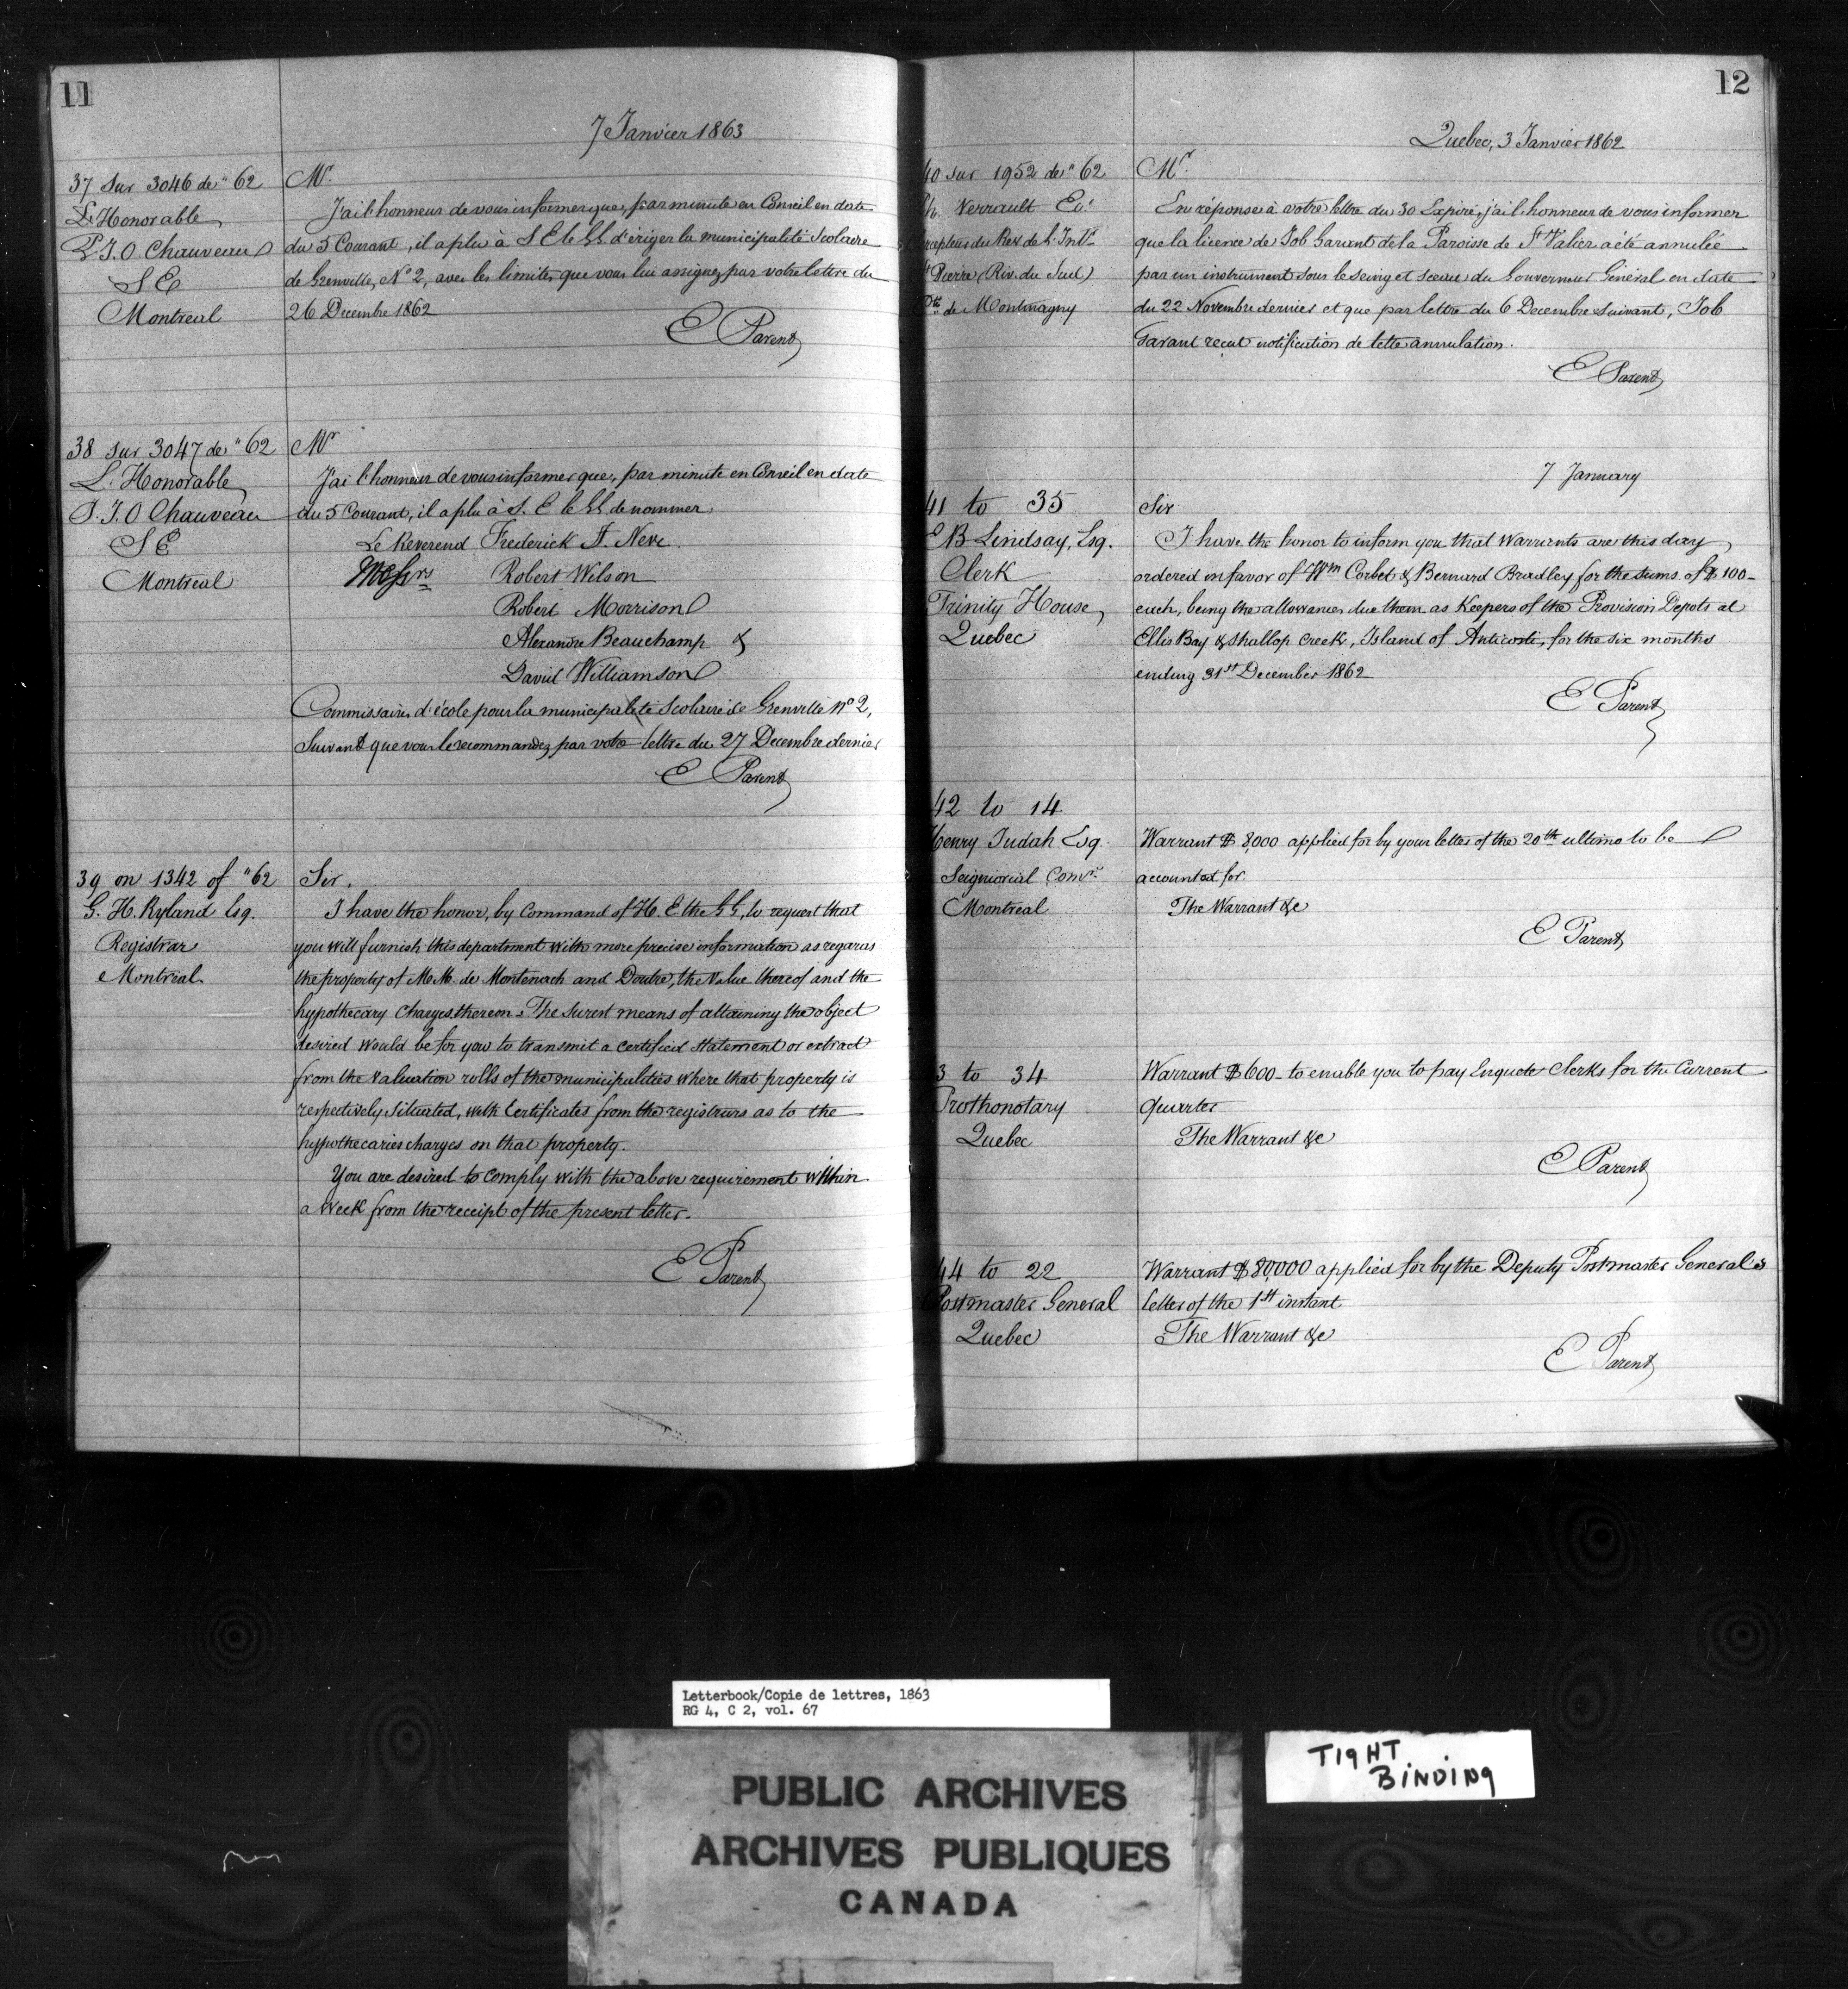 11
7 Janvier 1863
37 Sur 3046 de "62
L'Honorable
P. J. O Chauveau
S E
Montreal
Mr.
J'ai l'honneur de vous informer que, par minute en Conseil en date
du 5 Courant, il a plu à S E le GG. d'ériger la municipalité Scolaire
de Grenville, No 2, avec les limites que vous lui assignez par votre lettre du
26 Decembre 1862
E Parent
38 Sur 3047 de "62
L'Honorable
P. J. O Chauveau
S E
Montreal
Mr
J'ai l'honneur de vous informer que, par minute en Conseil en date
du 5 Courant, il a plu à S. E le GG de nommer,
Le Reverend Frederick F. Neve
Messrs Robert Wilson
Robert Morrison
Alexandre Beauchamp &
David Williamson
Commissaires d'école pour la municipalité Scolaire de Grenville No 2,
Suivant que vous le recommandez par votre lettre du 27 Decembre dernier
E Parent
39 on 1342 of "62
G. H. Ryland Esq.
Registrar
Montreal
Sir,
I have the honor, by Command of H. E the GG, to request that
you will furnish this department with more precise information as regards
the property of M.M. de Montenach and Doutre, the Value thereof and the
hypothecary Charges thereon. The Surest means of attaining the object
desired would be for you to transmit a certified Statement or extract
from the Valuation rolls of the municipalities where that property is
respectively Situated, with Certificates from the registrars as to the
hypothecaries charges on that property.
You are desired to comply with the above requirement within
a Week from the receipt of the present letter.
E Parent
12
Quebec, 3 Janvier 1862
40 sur 1952 de "62
Ph. Verrault Ecr
ercepteur du Rev. de l'Intr
St Pierre (Riv. du Sud)
Cté de Montmagny
Mr.
En réponse à votre lettre du 30 Expiré, j'ai l'honneur de vous informer
que la licence de Job Garant de la Paroisse de St Valier a été annulée
par un instrument sous le seing et sceau du Gouverneur Général en date
du 22 Novembre dernier et que par lettre du 6 Decembre Suivant, Job
Garant recut notification de cette annulation.
E Parent
7 January
41 to 35
E B Lindsay, Esq.
Clerk
Trinity House,
Quebec
Sir
I have the honor to inform you that Warrants are this day
ordered in favor of Wm Corbet & Bernard Bradley for the sums of $100-
each, being the allowances due them as Keepers of the Provision Depots at
Ellis Bay & Shallop Creek, Island of Anticosti, for the six months
ending 31st December 1862
E Parent
42 to 14
Henry Judah Esq.
Seigniorial Comr
Montreal
Warrant $ 8,000 applied for by your letter of the 20th ultimo to be
accounted for
The Warrant &c
E Parent
3 to 34
Prothonotary
Quebec
Warrant $600- to enable you to pay Enquete Clerks for the Current
quarter
The Warrant &c
E Parent
44 to 22
Postmaster General
Quebec
Warrant $ 80,000 applied for by the Deputy Postmaster General's
letter of the 1st instant
The Warrant &c
E Parent
Letterbook/Copie de lettres, 1863
RG 4, C 2, vol. 67
PUBLIC ARCHIVES
ARCHIVES PUBLIQUES
CANADA
TIGHT
BINDING